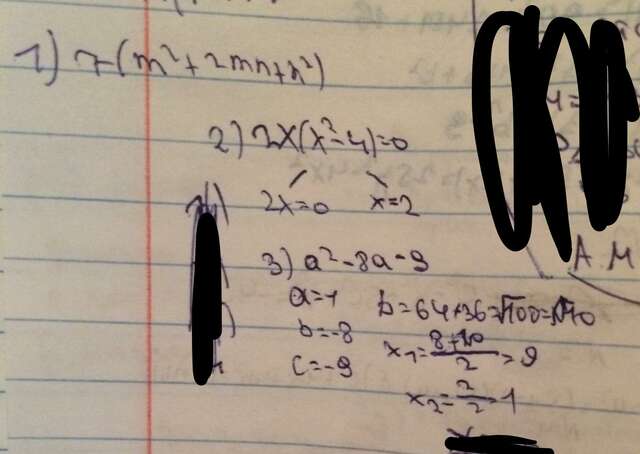 1) 7(m²+2mn+n²)
2) 2x(x²-4)=0
2x=0 x=2
3) a²-8a-9
a=1 b=64+36=√100=√10
b=-8
c=-9 x₁=8+10/2=9
x₂=2/2=1
A.M